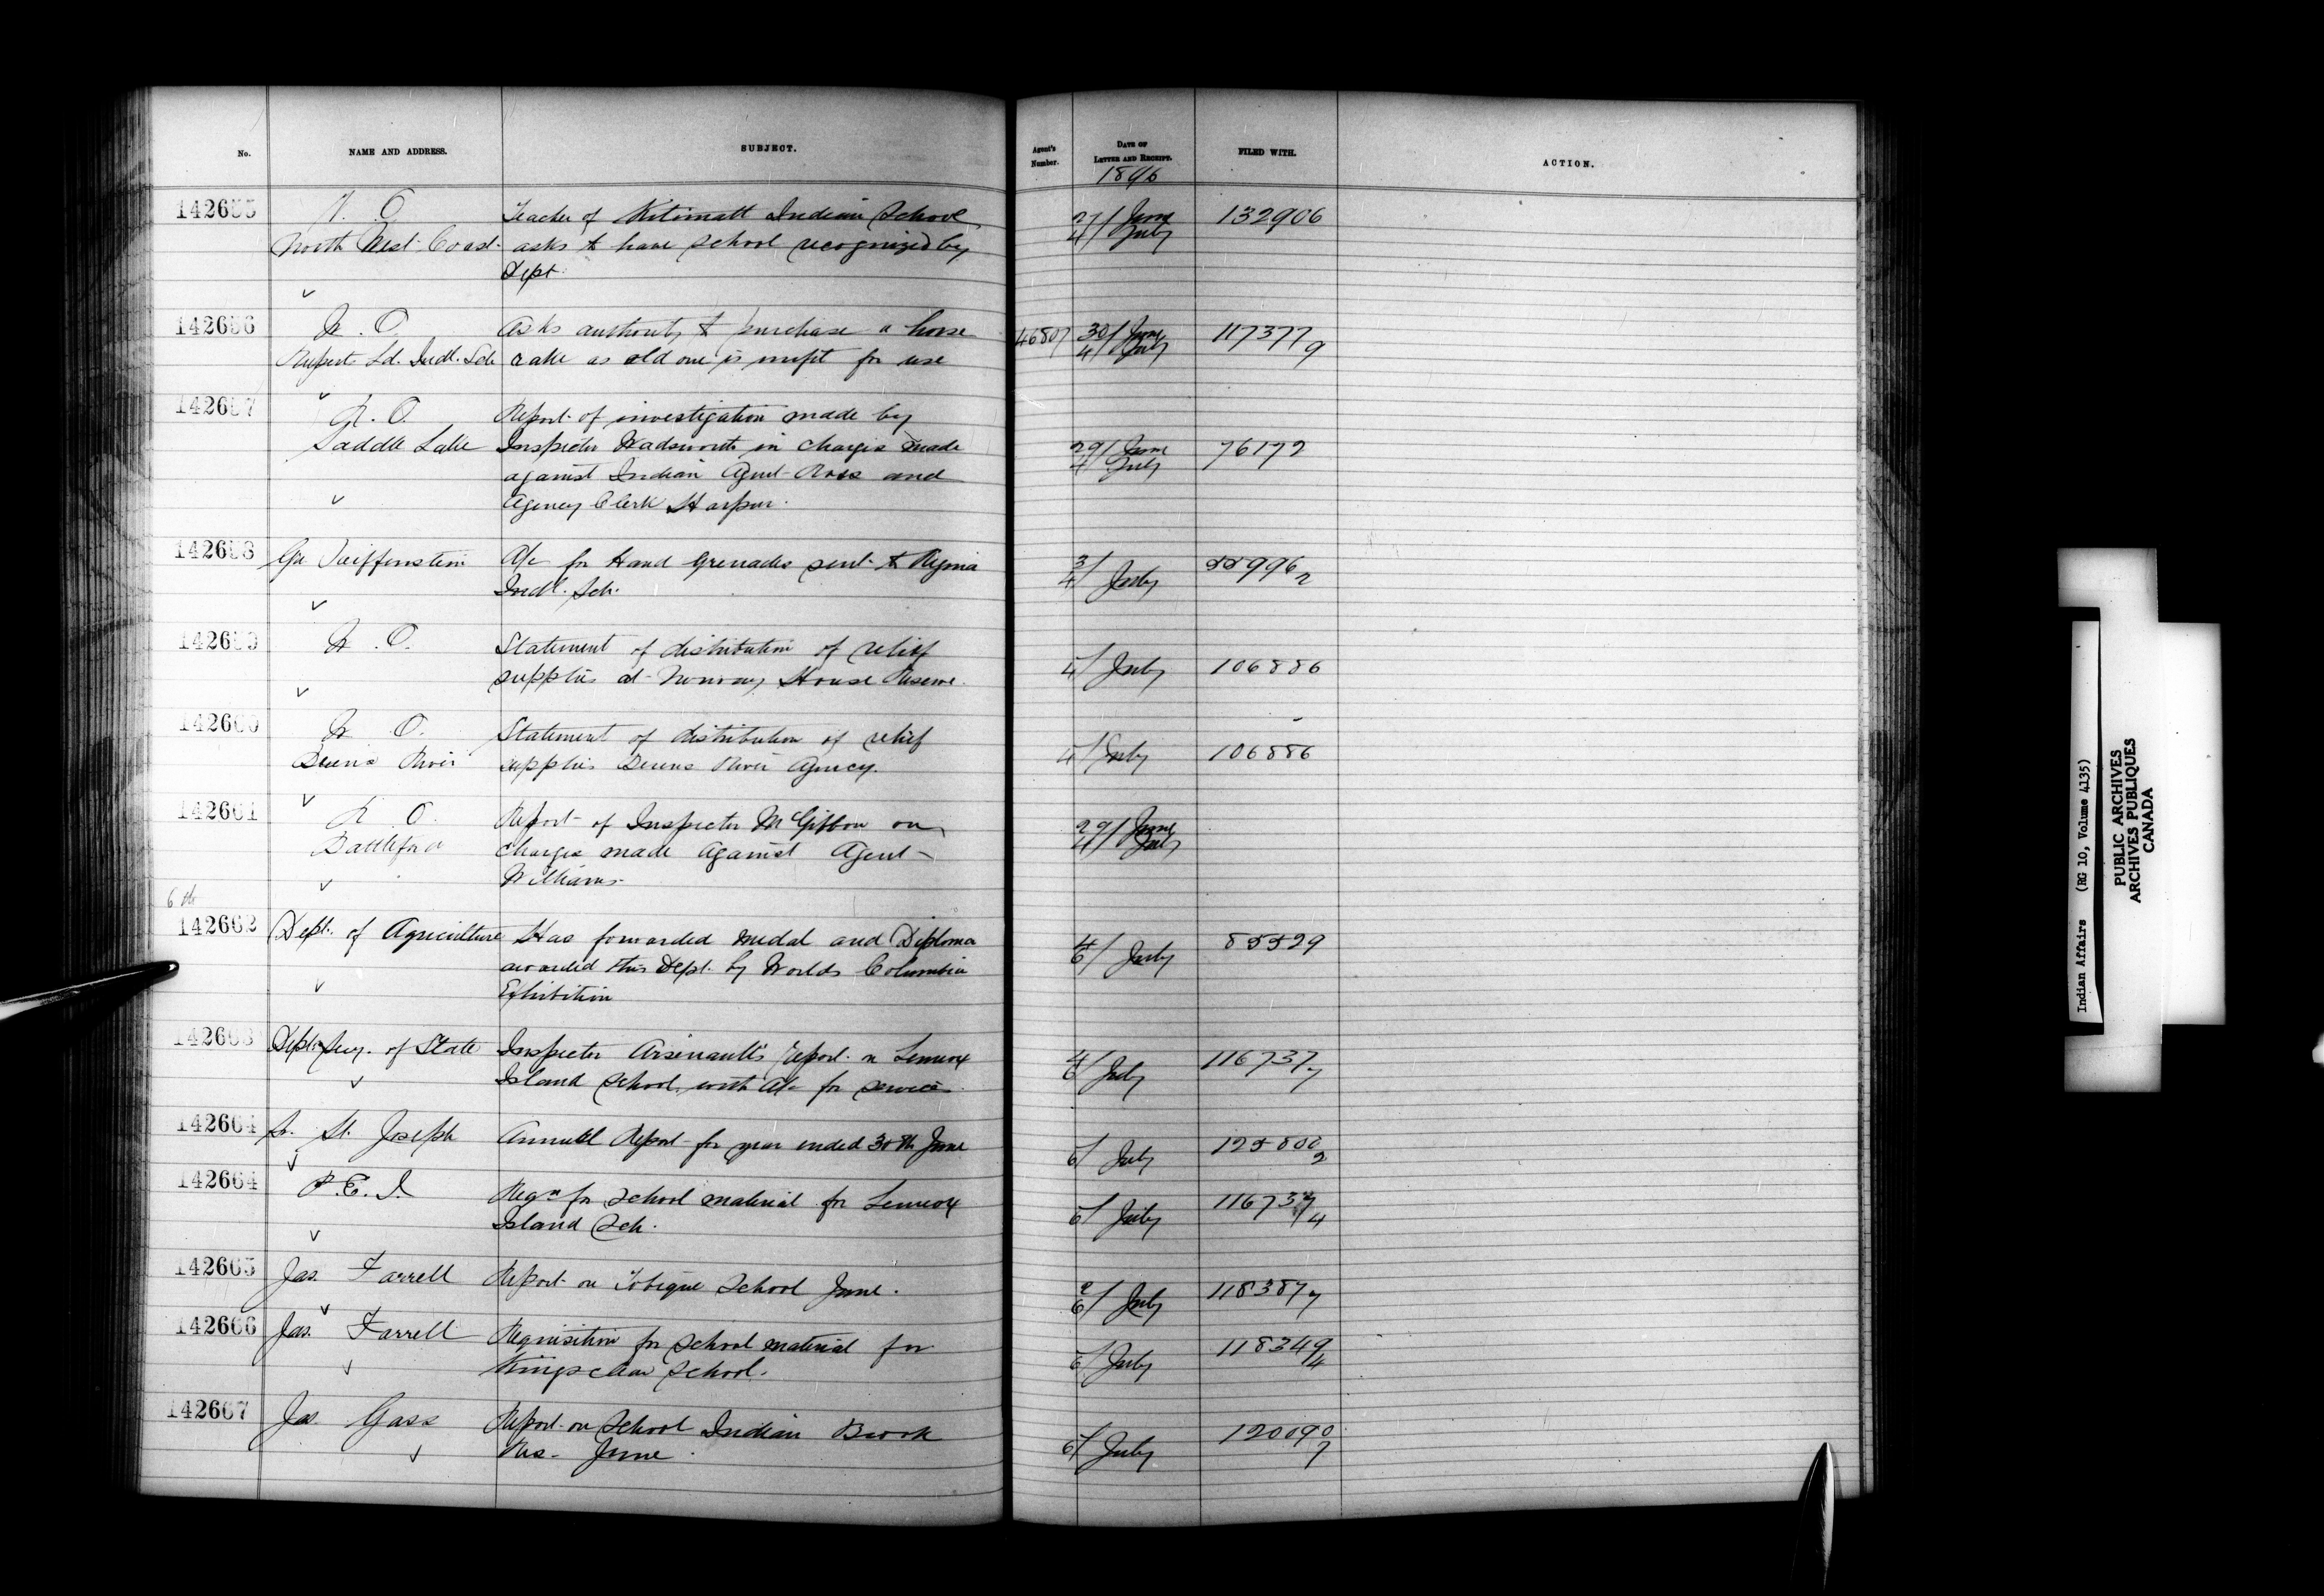 No. NAME AND ADDRESS. SUBJECT. Agent's Number. DATE OF LETTER AND RECEIPT. FILED WITH. ACTION.
1896
142655 V. O. Teacher of Kitimatt Indian School 27/June 132906
North West Coast asks to have school recognized by 4/July
Dept.
142656 W. O. Asks authority to purchase a horse 46807 30/June 117377/9
Ruperts Ld. Indl. Sch rake as old one is unfit for use 4/July
142657 R. O. Report of investigation made by
Saddle Lake Inspector Wadsworth in charges made 29/June 76172
against Indian Agent Ross and 4/July
Agency Clerk Harpur.
142658 Reiffenstein A/c for Hand Grenades sent to Regina 3/4 July 55996/2
Indl. Sch.
142659 W. O. Statement of distribution of relief
supplies at Norway House Reserve. 4/July 106886
142660 W. O. Statement of distribution of relief
Berens River supplies Berens River Agency. 4/July 106886
142661 R. O. Report of Inspector McGibbon on 29/June
Battleford charges made against Agent 4/July
Williams
6th
142662 Dept. of Agriculture Has forwarded medal and Diploma 4/6 July 85529
awarded this Dept. by Worlds Columbia
Exhibition
142663 Dept. Secy. of State Inspector Arsenault's report on Lennox 4/6 July 116737/7
Island School, with A/c for services
142664 St. Joseph Annual Report for year ended 30th June 6/July 125800/2
142664 P. E. I. Reqn for school material for Lennox 6/July 116737/4
Island Sch.
142665 Jas. Farrell Report on Tobique School June. 2/6 July 118387/7
142666 Jas. Farrell Requisition for school material for 6/July 118349/4
Kingsclear School.
142667 Jas. Gass Report on School Indian Brook 6/July 120090/7
Res. June.
Indian Affairs (RG 10, Volume 4135)
PUBLIC ARCHIVES
ARCHIVES PUBLIQUES
CANADA